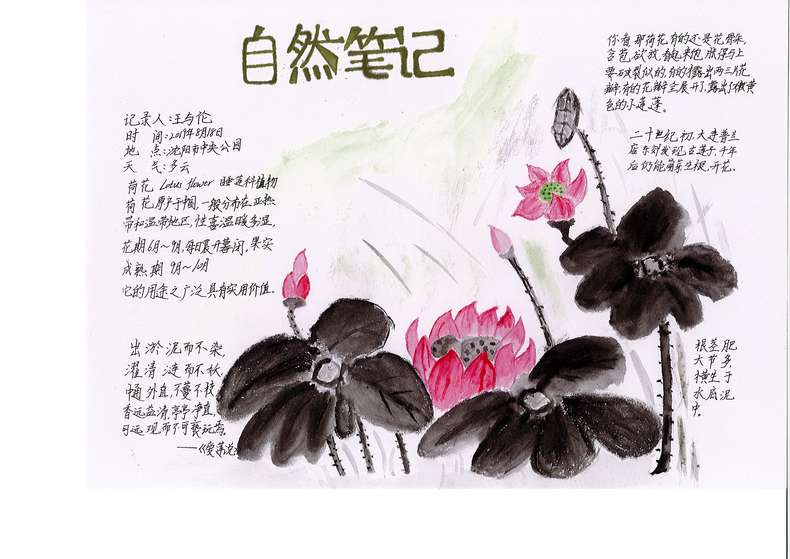 自然笔记
记录人:王与伦
时 间:2019年8月18日
地 点:沈阳市中央公园
天 气:多云
荷花 Lotus flower 睡莲科植物
荷花原产于中国,一般分布在亚热
带和温带地区,性喜温暖多湿,
花期6月～9月,每日晨开暮闭。果实
成熟期 9月～10月
它的用途之广泛具有实用价值.
出淤泥而不染,
濯清涟而不妖,
中通外直,不蔓不枝
香远益清,亭亭净直,
可远观而不可亵玩焉。
——《爱莲说
你看那荷花,有的还是花骨朵,
含苞欲放,看起来饱胀得马上
要破裂似的,有的才露出两三片花
瓣,有的花瓣全展开了,露出了嫩黄
色的小莲蓬。
二十世纪初,大连普兰
店东郊发现古莲子,千年
后仍能萌芽生根,开花。
根茎肥
大节多,
横生于
水底泥
中。